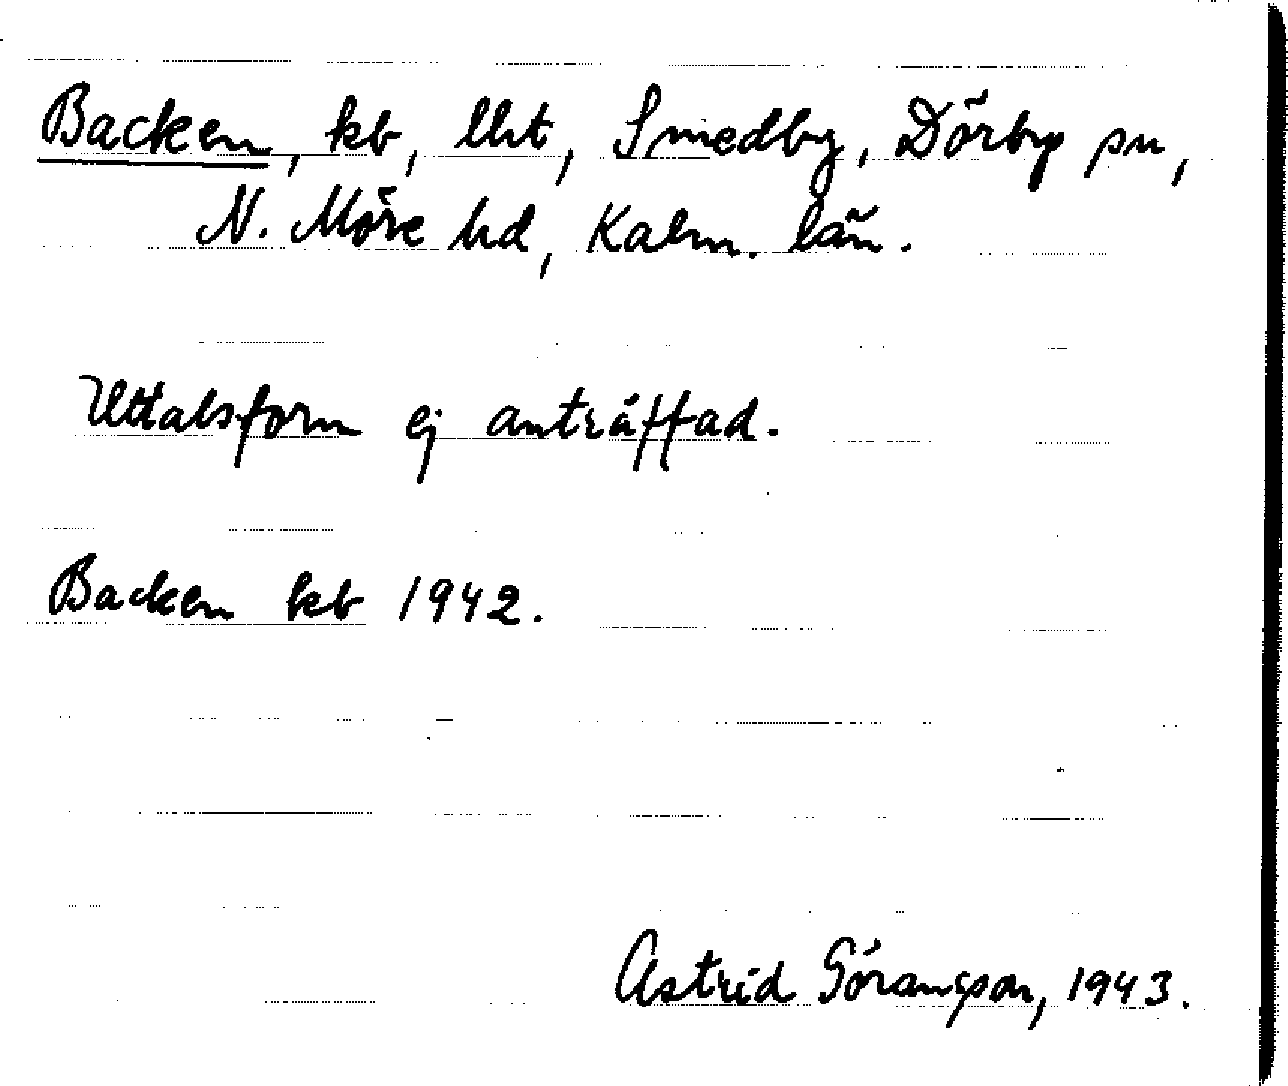 Backen, kb, lht, Smedby, Dörby sn,
N. Möre hd, Kalm. län.
Uttalsform ej anträffad.
Backen kb 1942.
Astrid Göransson, 1943.